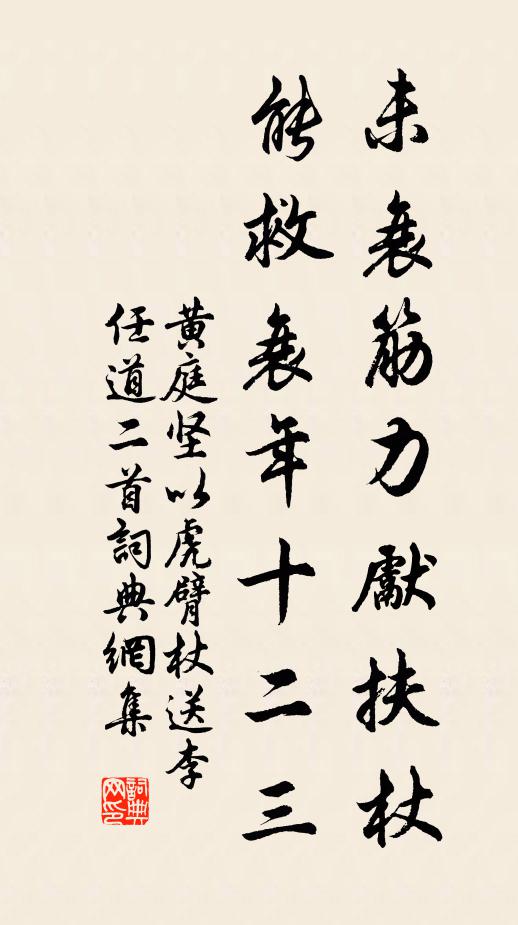 未衰筋力獻扶杖
能救衰年十二三
黄庭坚以虎臂杖送李
任道二首詞典網集
詞典
网印